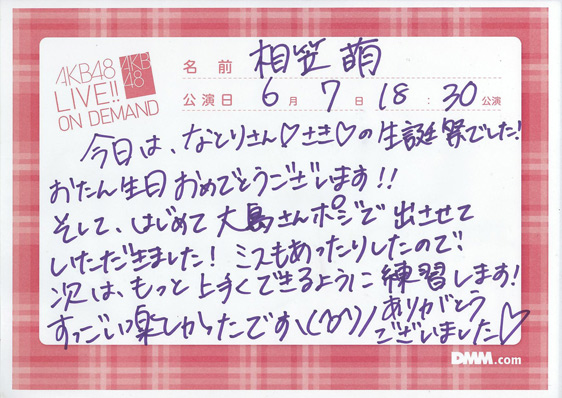 AKB48
LIVE!!
ON DEMAND
AKB
48
名前 相笠萌
公演日 6月7日 18:30公演
今日は、なとりさん♡さき♡の生誕祭でした!
おたん生日おめでとうございます!!
そして、はじめて大島さんポジで出させて
いただきました!ミスもあったりしたので
次は、もっと上手くできるように練習します!
すっごい楽しかったです\( )/ありがとう
ございました♡
DMM.com